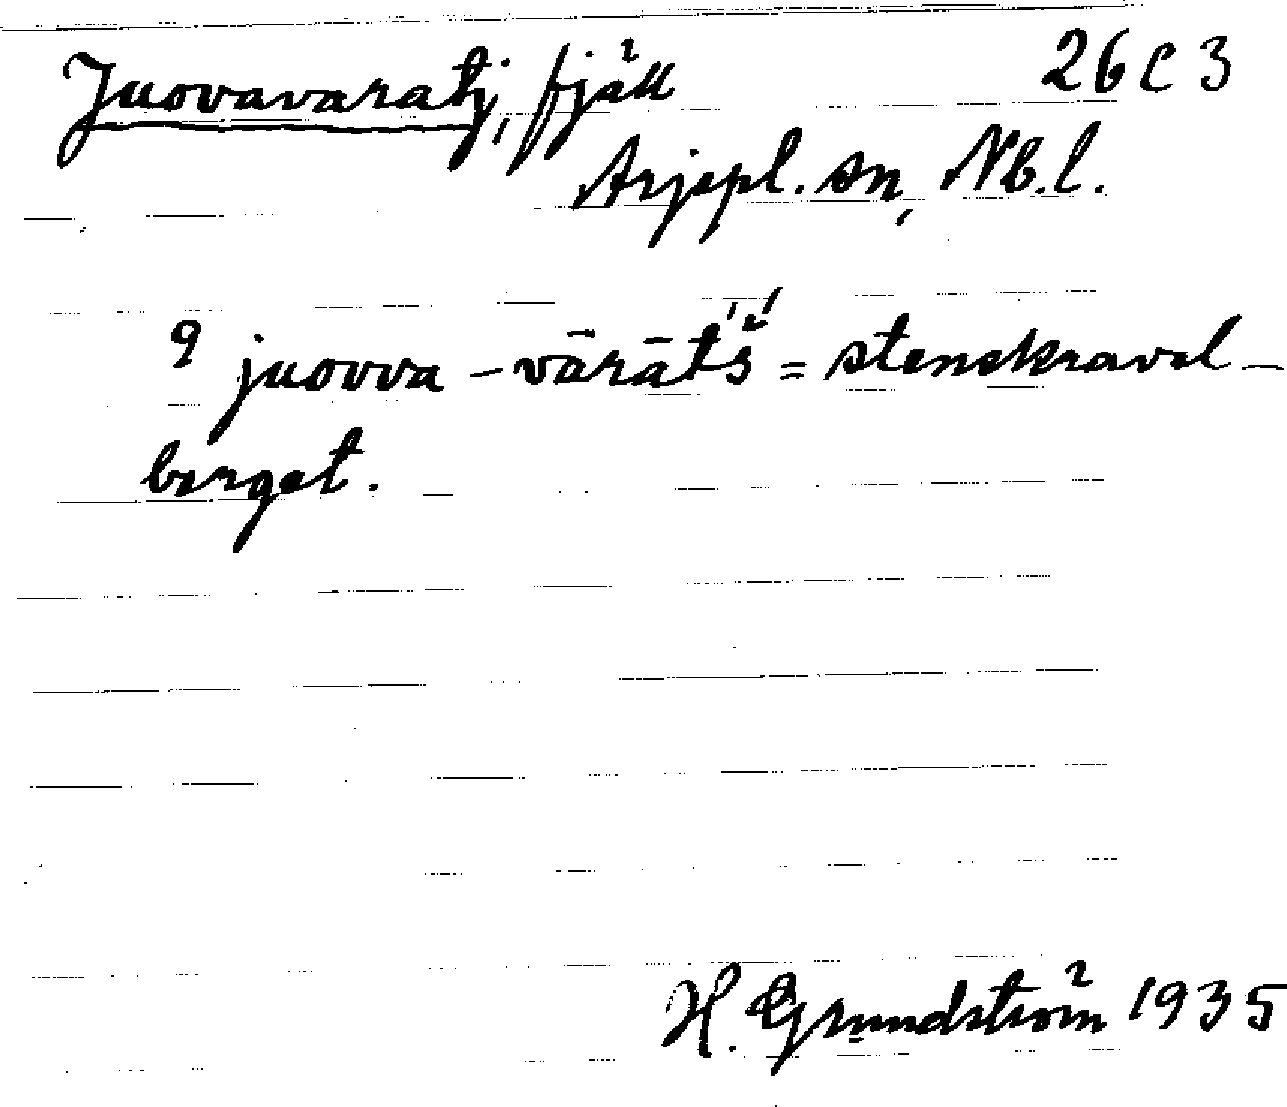 Juovavaratj, fjäll 26 C 3
Arjepl. sn, Nb.l.
9 juovva - vārātš́ = stenskravel-
berget.
H. Grundström 1935